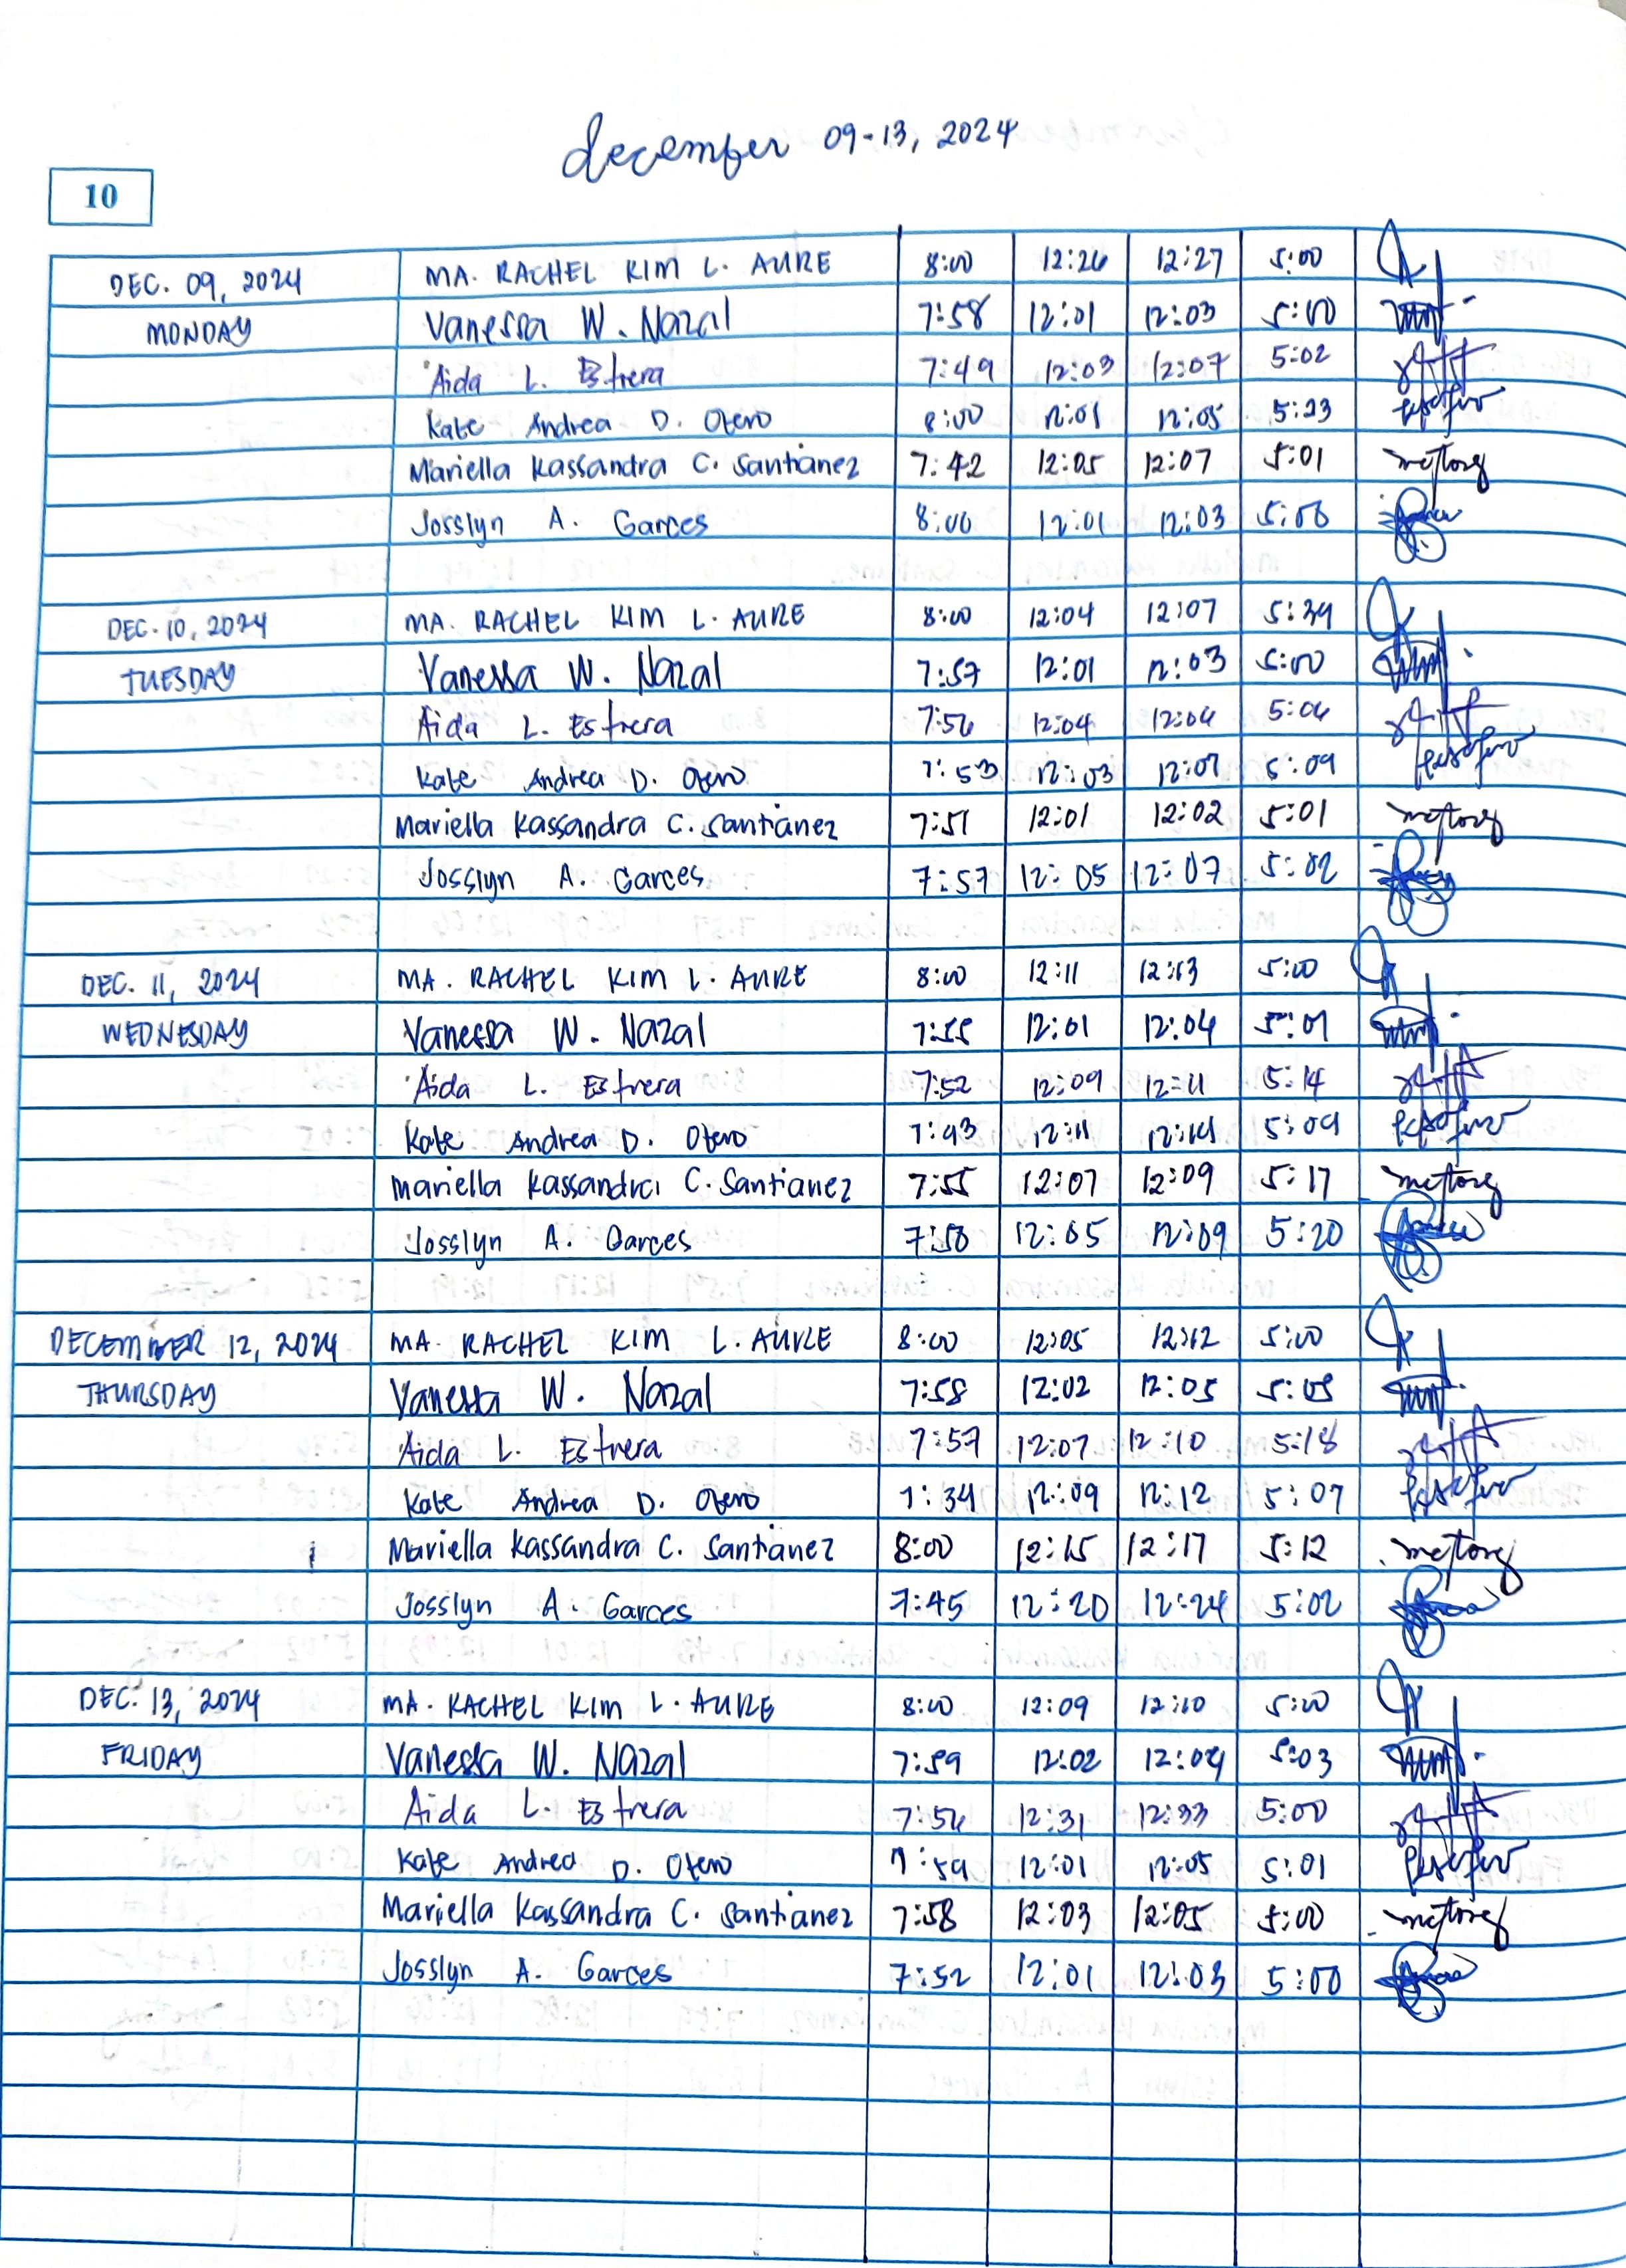 december 09-13, 2024
10
DEC. 09, 2024 MA. RACHEL KIM L. AURE 8:00 12:26 12:27 5:00
MONDAY Vanessa W. Nazal 7:58 12:01 12:03 5:00
Aida L. Estrera 7:49 12:03 12:07 5:02
Kate Andrea D. Otero 8:00 12:01 12:05 5:23
Mariella Kassandra C. Santianez 7:42 12:05 12:07 5:01
Josslyn A. Garces 8:00 12:01 12:03 5:08
DEC. 10, 2024 MA. RACHEL KIM L. AURE 8:00 12:04 12:07 5:34
TUESDAY Vanessa W. Nazal 7:57 12:01 12:03 5:00
Aida L. Estrera 7:56 12:04 12:06 5:06
Kate Andrea D. Otero 7:53 12:03 12:07 5:09
Mariella Kassandra C. Santianez 7:51 12:01 12:02 5:01
Josslyn A. Garces 7:57 12:05 12:07 5:02
DEC. 11, 2024 MA. RACHEL KIM L. AURE 8:00 12:11 12:13 5:00
WEDNESDAY Vanessa W. Nazal 7:55 12:01 12:04 5:01
Aida L. Estrera 7:52 12:09 12:11 5:14
Kate Andrea D. Otero 7:43 12:11 12:14 5:09
Mariella Kassandra C. Santianez 7:55 12:07 12:09 5:17
Josslyn A. Garces 7:58 12:05 12:09 5:20
DECEMBER 12, 2024 MA. RACHEL KIM L. AURE 8:00 12:05 12:12 5:00
THURSDAY Vanessa W. Nazal 7:58 12:02 12:05 5:05
Aida L. Estrera 7:57 12:07 12:10 5:18
Kate Andrea D. Otero 7:34 12:09 12:12 5:07
Mariella Kassandra C. Santianez 8:00 12:15 12:17 5:12
Josslyn A. Garces 7:45 12:20 12:24 5:02
DEC. 13, 2024 MA. RACHEL KIM L. AURE 8:00 12:09 12:10 5:00
FRIDAY Vanessa W. Nazal 7:59 12:02 12:04 5:03
Aida L. Estrera 7:56 12:31 12:33 5:00
Kate Andrea D. Otero 7:59 12:01 12:05 5:01
Mariella Kassandra C. Santianez 7:58 12:03 12:05 5:00
Josslyn A. Garces 7:52 12:01 12:03 5:00